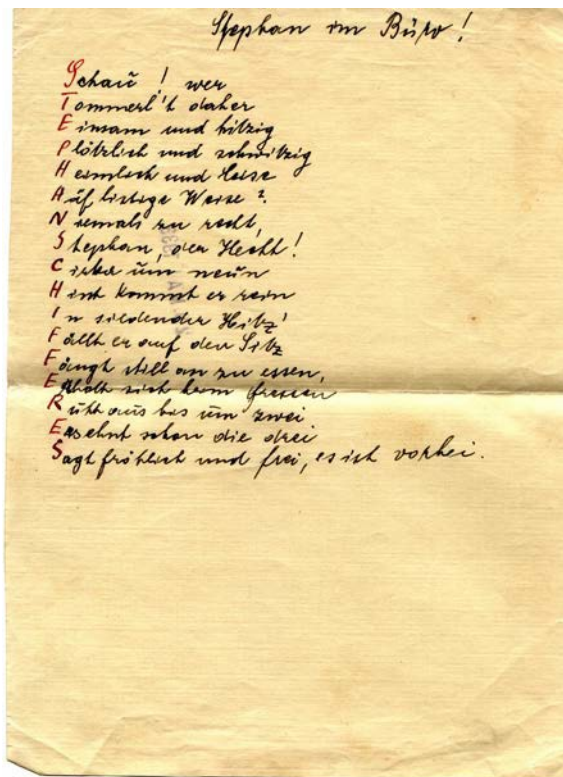 Stephan im Büro!
Schau! wer
Tommerl't daher
Einsam und hitzig
Plötzlich und schwitzig
Heimlich und leise
Auf listige Weise?
Niemals zu recht,
Stephan, der Hecht!
Cirka um neun
Hint kommt er rein
In siedender Hitz'
Fällt er auf den Sitz
Fängt still an zu essen,
Erholt sich beim fressen
Ruht aus bis um zwei
Ersehnt schon die drei
Sagt fröhlich und frei, es ist vorbei.